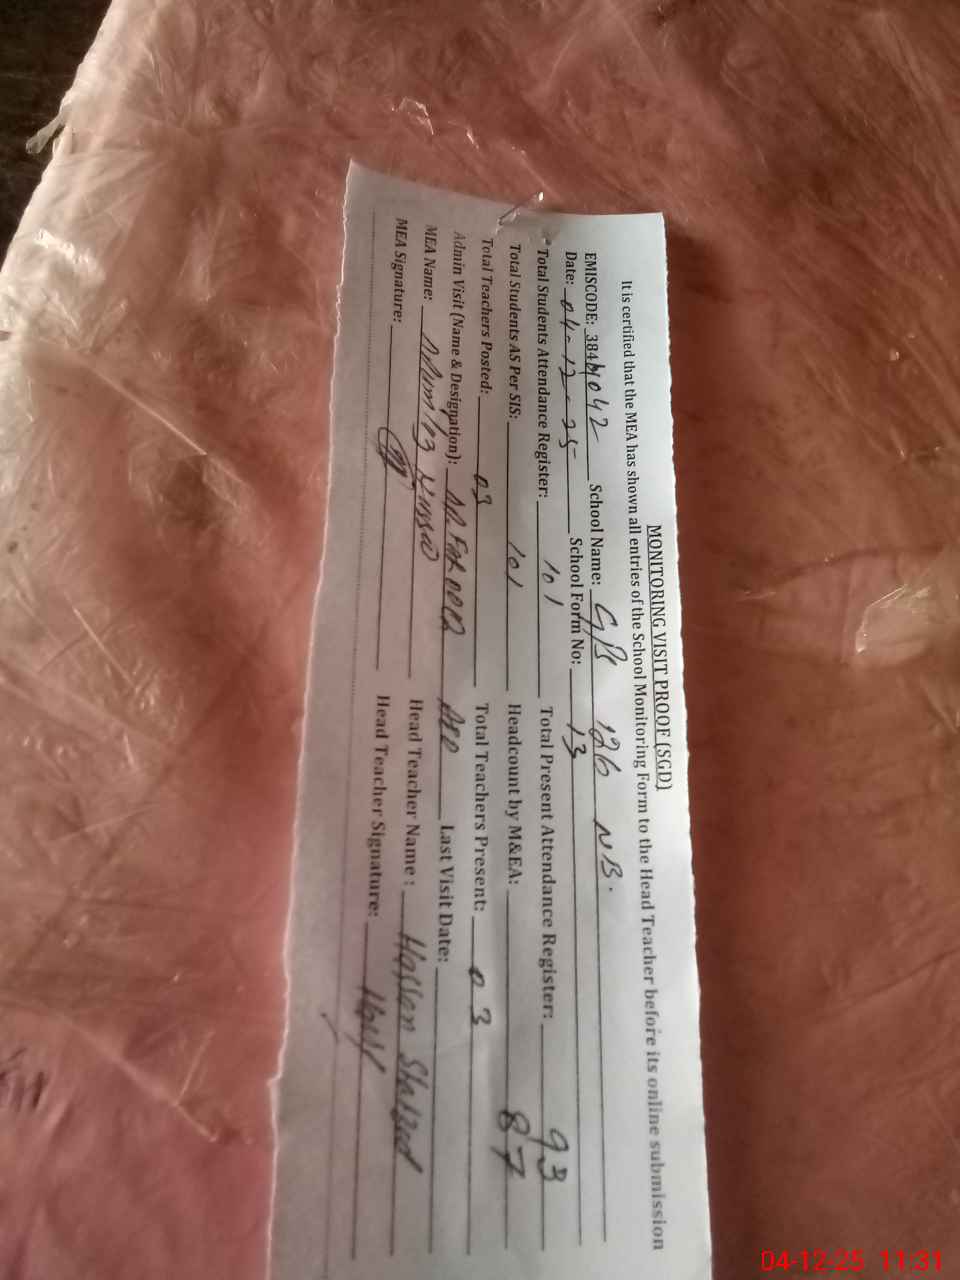 MONITORING VISIT PROOF (SGD)
It is certified that the MEA has shown all entries of the School Monitoring Form to the Head Teacher before its online submission
EMISCODE: 384 School Name: GPS 126 NB.
Date: 04-12-25 School Form No: 13
Total Students Attendance Register: 101 Total Present Attendance Register: 93
Total Students AS Per SIS: 101 Headcount by M&EA: 87
Total Teachers Posted: 03 Total Teachers Present: 03
Admin Visit (Name & Designation): Last Visit Date:
MEA Name: Head Teacher Name :
MEA Signature: Head Teacher Signature:
04-12-25 11:31